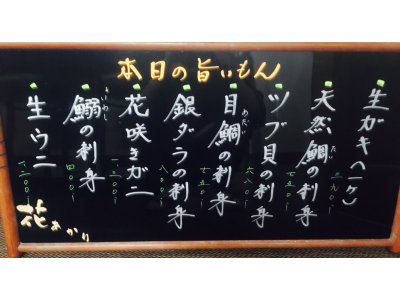 本日の旨いもん
生ガキ(一ケ)
三九〇〜
天然鯛の刺身
たい
七五〇〜
ツブ貝の刺身
六八〇〜
目鯛の刺身
めだい
七五〇〜
銀ダラの刺身
八〇〇〜
花咲きガニ
一、三〇〇〜
鰯の刺身
いわし
四〇〇〜
生ウニ
一、二〇〇〜
花あかり